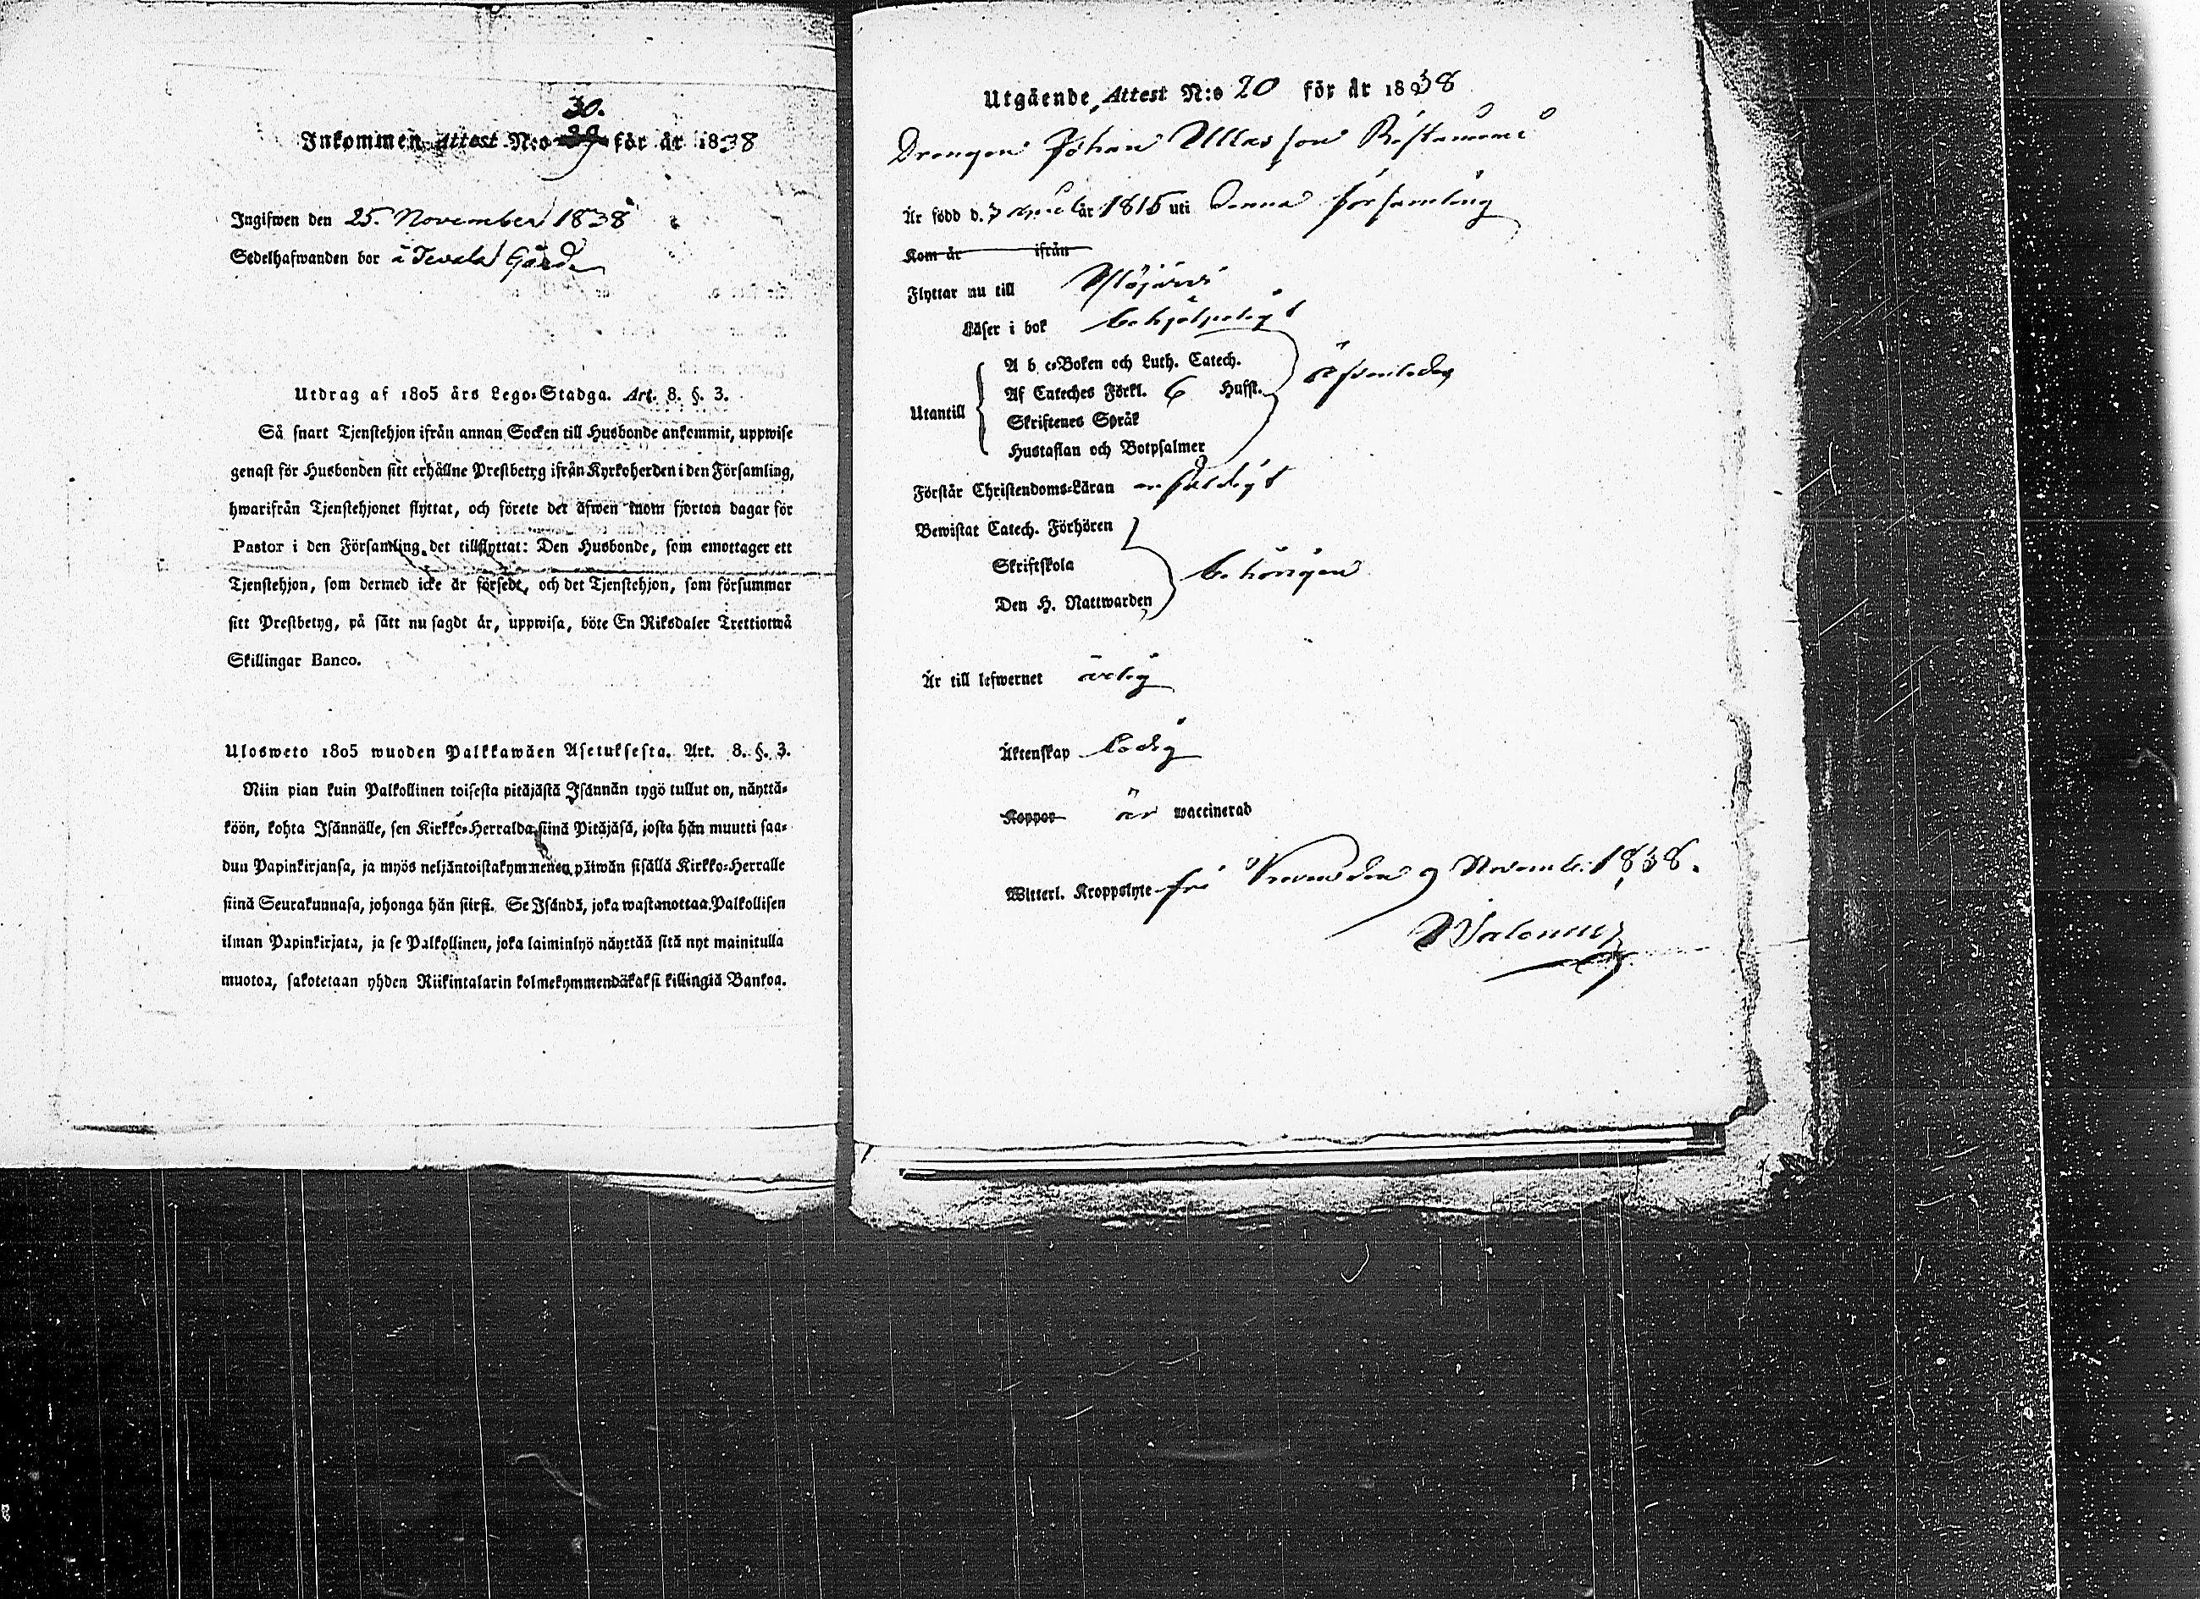 30.
Inkommen Attest N:o 29 för år 1838
Ingifwen den 25. November 1838
Sedelhafwanden bor å Tevala Gård
Utdrag af 1805 års Lego-Stadga. Art. 8. §. 3.
Så snart Tjenstehjon ifrån annan Socken till Husbonde ankommit, uppwise
genast för Husbonden sitt erhållne Prestbetyg ifrån Kyrkoherden i den Församling,
hwarifrån Tjenstehjonet flyttat, och förete det äfwen inom fjorton dagar för
Pastor i den Församling det tillflyttat: Den Husbonde, som emottager ett
Tjenstehjon, som dermed icke är försedt, och det Tjenstehjon, som försummar
sitt Prestbetyg, på sätt nu sagdt är, uppwisa, böte En Riksdaler Trettiotwå
Skillingar Banco.
Ulosweto 1805 wuoden Palkkawäen Asetuksesta. Art. 8. §. 3.
Niin pian kuin Palkollinen toisesta pitäjästä Isännän tygö tullut on, näyttä-
köön, kohta Isännälle, sen Kirkko-Herralda siinä Pitäjäsä, josta hän muutti saa-
dun Papinkirjansa, ja myös neljäntoistakymmenen päiwän sisällä Kirkko-Herralle
siinä Seurakunnasa, johonga hän siirsi. Se Isändä, joka wastanottaa Palkollisen
ilman Papinkirjata, ja se Palkollinen, joka laiminlyö näyttää sitä nyt mainitulla
muotoa, sakotetaan yhden Riikintalarin kolmekymmendäkaksi killingiä Bankoa.
Utgående Attest N:o 20 för år 1838
Drengen Johan Ullasson
Är född d. 7 år 1815 uti denna församling
Kom år ifrån
Flyttar nu till Ylöjärvi
Läser i bok behjelpeligt
A b c-Boken och Luth. Catech.
Af Cateches Förkl. 6 Hufst.
Utantill
Skriftenes Språk
Hustaflan och Botpsalmer
Förstår Christendoms-Läran enfaldigt
Bewistat Catech. Förhören
Skriftskola
behörigen
Den H. Nattwarden
Är till lefwernet ärlig
Äktenskap ledig
Koppor är waccinerad
Witterl. Kroppslyte fri den 9 Novemb. 1838.